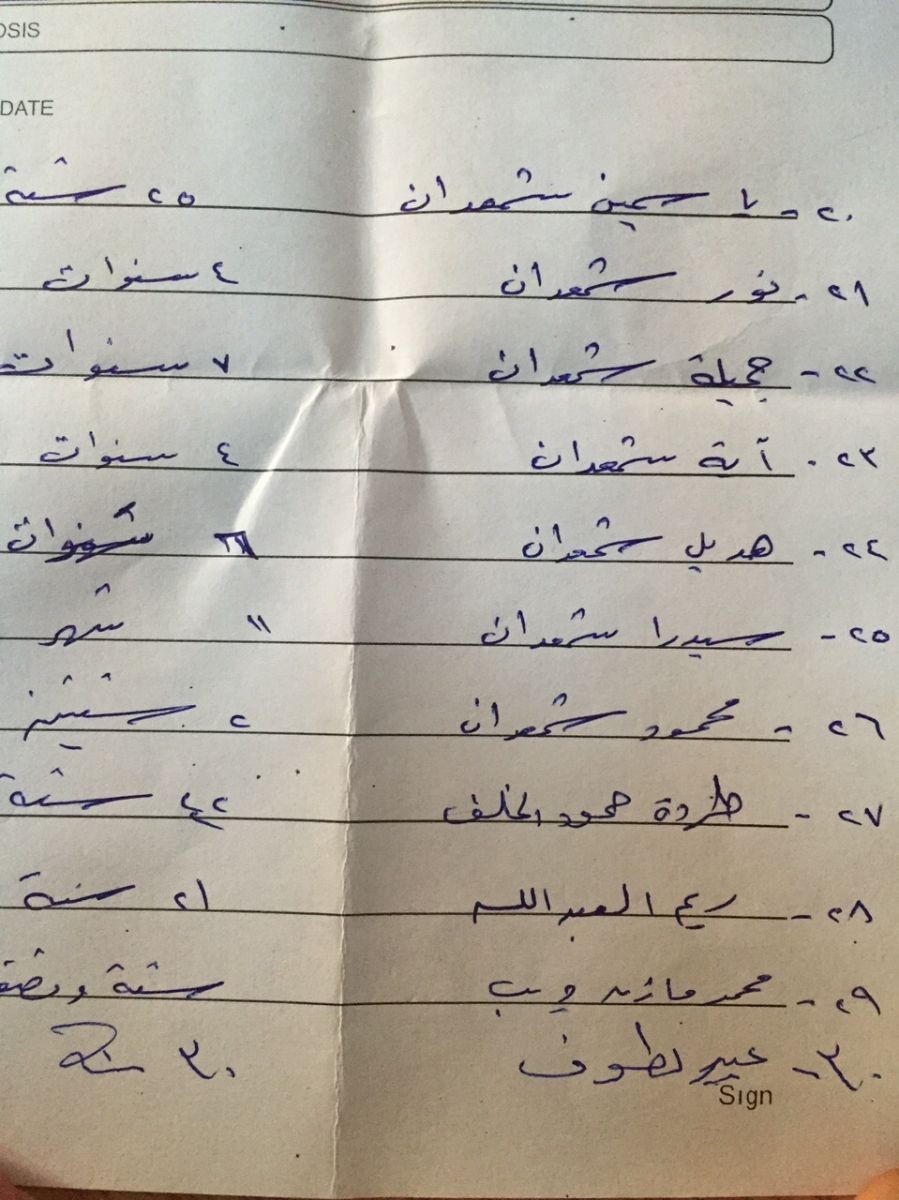 OSIS
DATE
٢٠- ياسمين شمعدان ٢٥ سنة
٢١- نور شمعدان ٤ سنوات
٢٢- جميلة شمعدان ٧ سنوات
٢٣- آية شمعدان ٤ سنوات
٢٤- هديل شمعدان سنوات
٢٥- سيدرا شمعدان ١١ شهر
٢٦- محمود شمعدان ٢ سنتين
٢٧- طردة حمود الخلف ٤٢ سنة
٢٨- العبدالله ٢١ سنة
٢٩- محمد مازن سنة ونصف
٣٠- عبير لطوف ٣٠ سنة
Sign